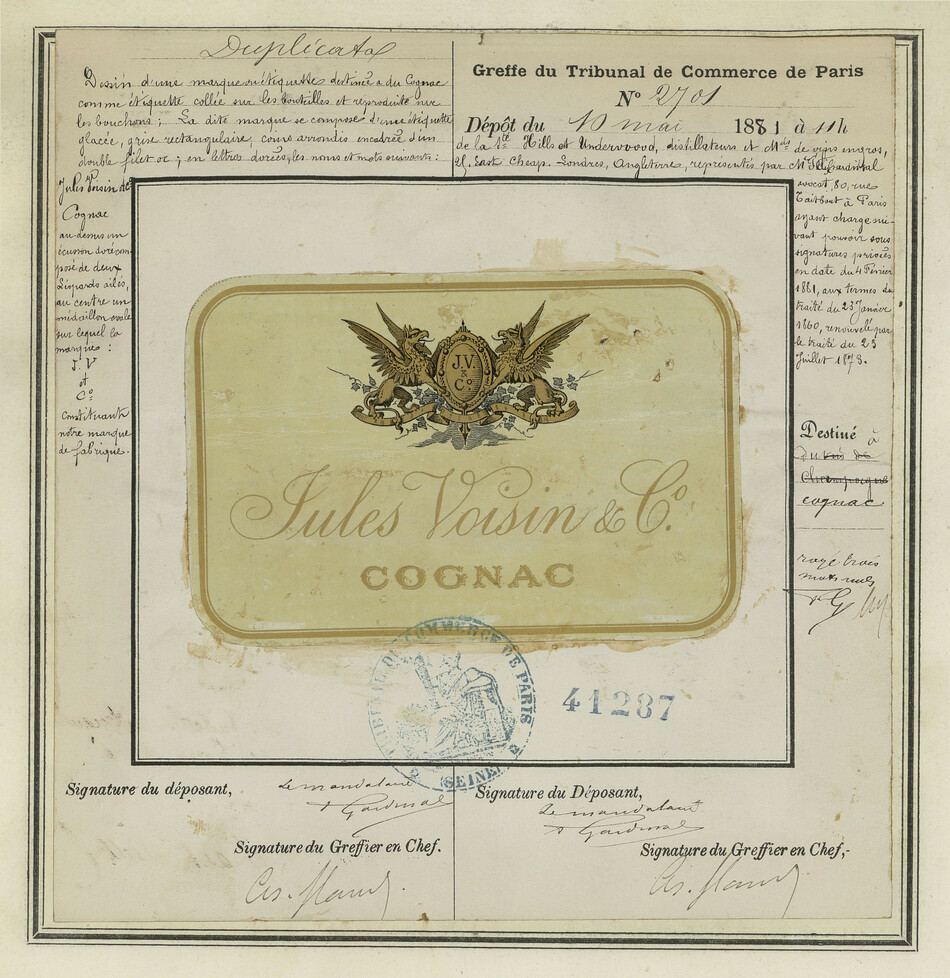 Duplicata
Dessin d'une marque ou étiquette destinée à du Cognac
comme étiquette collée sur les bouteilles et reproduite sur
les bouchons; La dite marque se compose d'une étiquette
glacée, grise rectangulaire, coins arrondis encadrée d'un
double filet or; en lettres dorées, les noms et mots suivants:
Jules Voisin &
Cognac
au-dessus un
écusson doré com-
posé de deux
Léopards ailés,
au centre un
médaillon ovale
sur lequel la
marque:
J. V
et
Co
Constituant
notre marque
de fabrique.
Greffe du Tribunal de Commerce de Paris
No 2701
Dépôt du 10 mai 1881 à 11h
de la Sté Hills et Underwood, distillateurs et Mds de vins en gros,
25. East Cheap. Londres, Angleterre, représentés par Mr
avocat, 80, rue
Taitbout à Paris
ayant charge sui-
vant pouvoir sous
signatures privées
en date du 4 Février
1881, aux termes du
traité du 23 Janvier
1860, renouvelé par
le traité du 23
Juillet 1873.
Destiné à
du vin de
Champagne
cognac
rayé trois
mots nuls
J.V.
&
Co.
Jules Voisin & Co.
COGNAC
TRIBUNAL DE COMMERCE DE PARIS
(SEINE)
41287
Signature du déposant,
Le mandataire
Signature du Greffier en Chef.
Signature du Déposant,
Le mandataire
Signature du Greffier en Chef,-